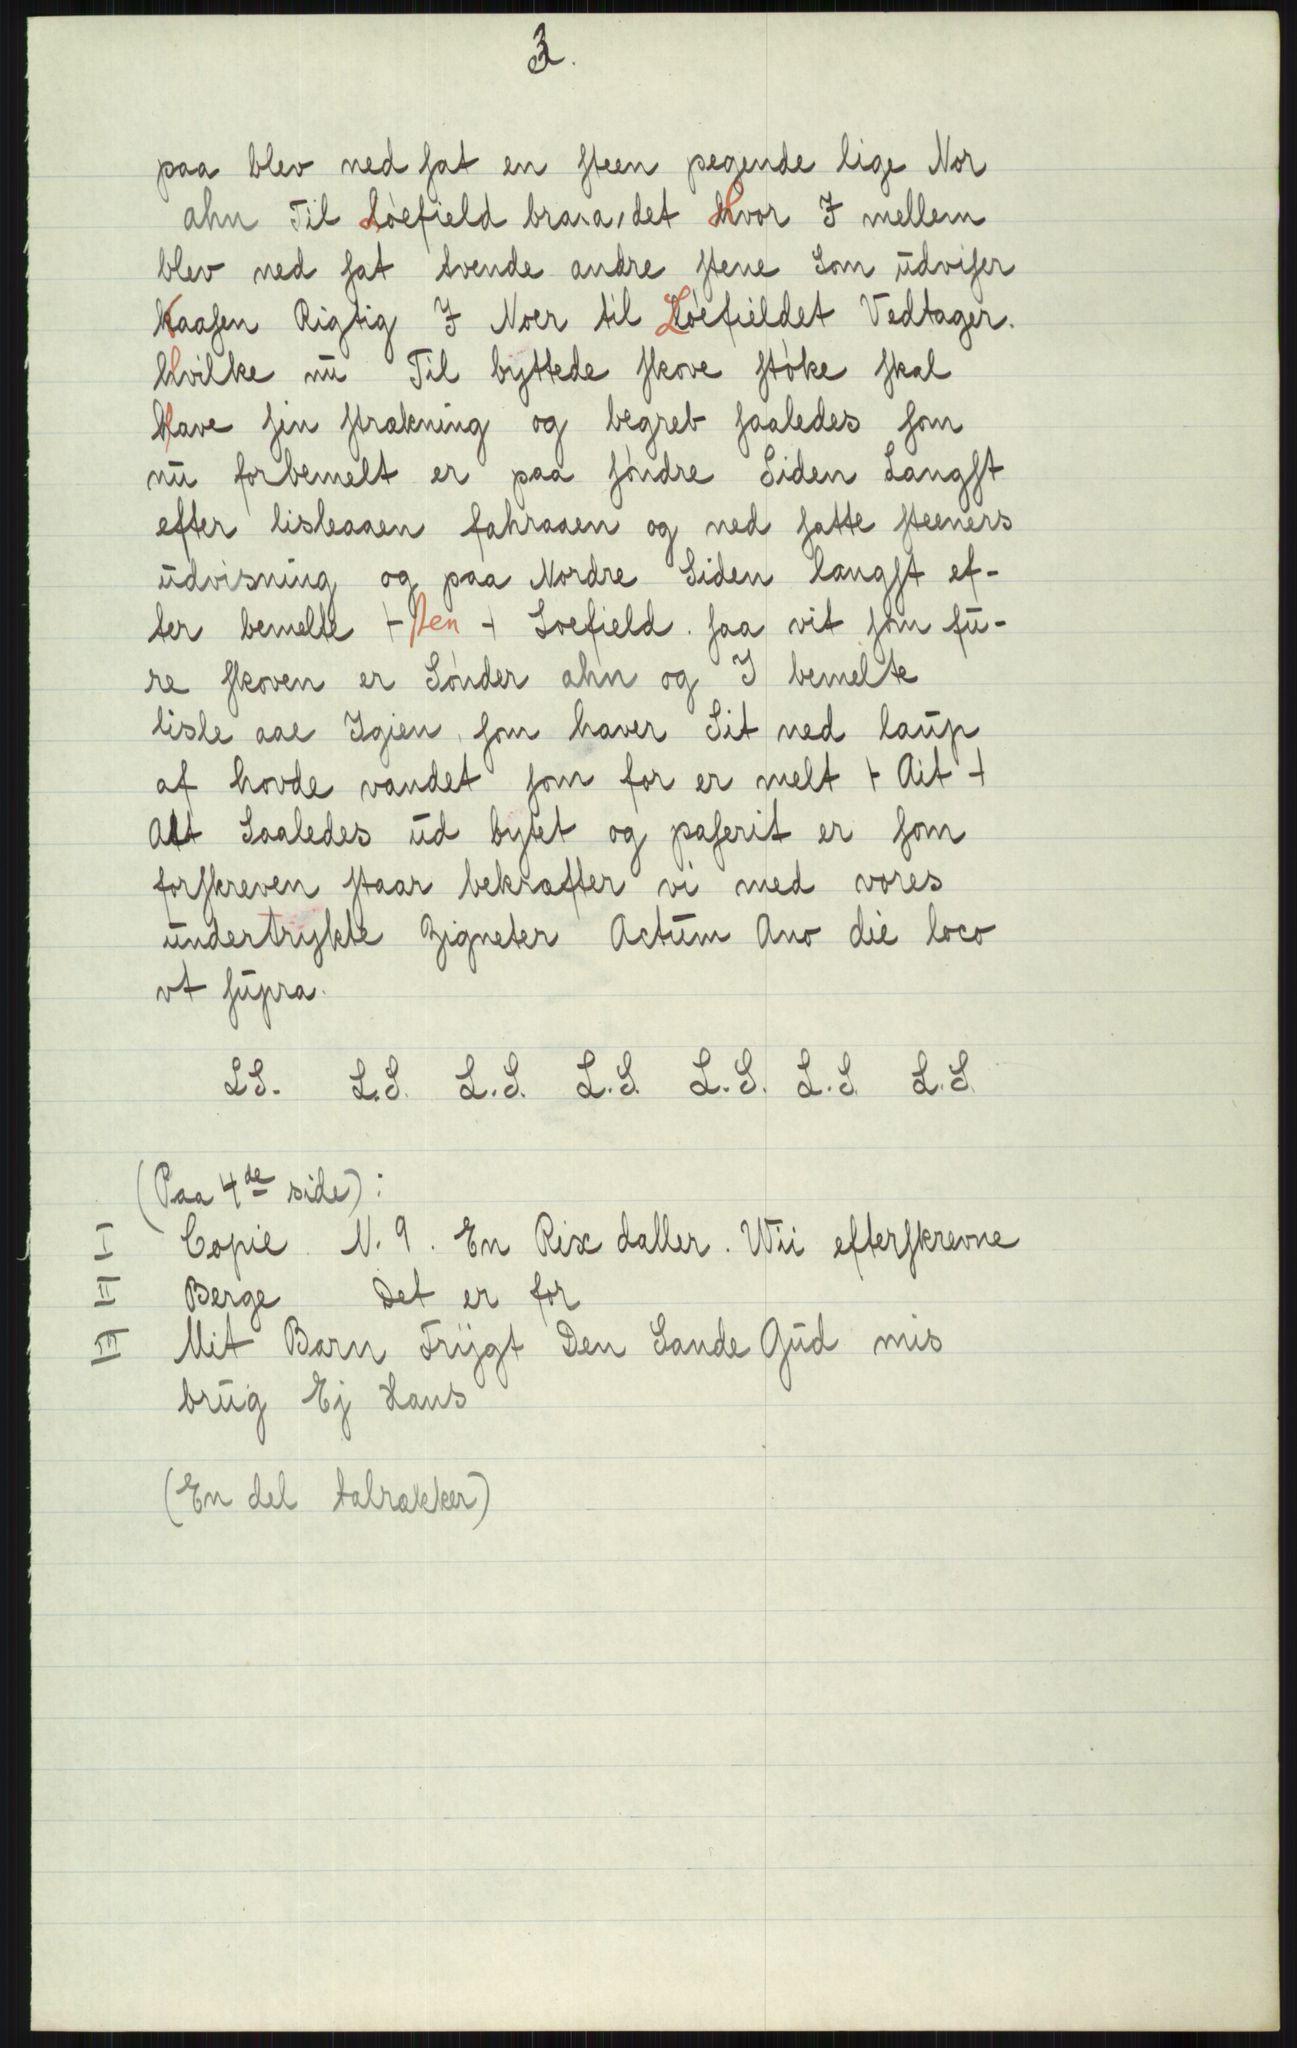 3.
paa blev ned sat en steen pegende lige Nor
ahn Til Löefield det Hvor I mellem
blev ned sat tvende andre stene Som udviser
kaasen Rigtig I Noer til Löefieldet Vedtager.
Hvilke nu Til byttede skove støke skal
have sin strækning og begreb saaledes som
nu forbemelt er paa søndre Siden Langst
efter lisleaaen fahraaen og ned satte steeners
udvisning og paa Nordre Siden langst ef-
ter bemelte + sten + Loefield. saa vit som fu-
re skoven er Sønder ahn og I bemelte
lisle aae Igien, som haver Sit ned laup
af hovde vandet som for er melt + Ait +
Alt Saaledes ud bytet og paserit er som
forskreven staar bekræfter vi med vores
undertrykte Zigneter Actum Ano die loco
vt supra.
LS. L.S. L.S. L.S. L.S. L.S. L.S.
(Paa 4de side):
I Copie N. 9. En Rix daller. Wii efterskrevne
II Berge Det er for
III Mit Barn Frygt Den Sande Gud mis
brug Ej Hans
(En del talrækker)